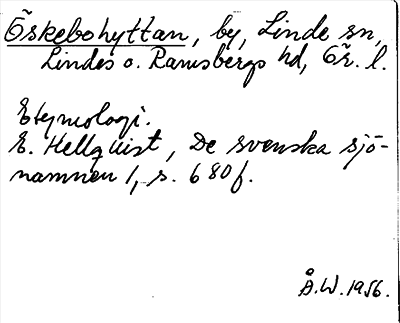 Öskebohyttan, by, Linde sn,
Lindes o. Ramsbergs hd, Ör. l.
Etymologi.
E. Hellquist, De svenska sjö-
namnen 1, s. 680f.
Å.W. 1956.